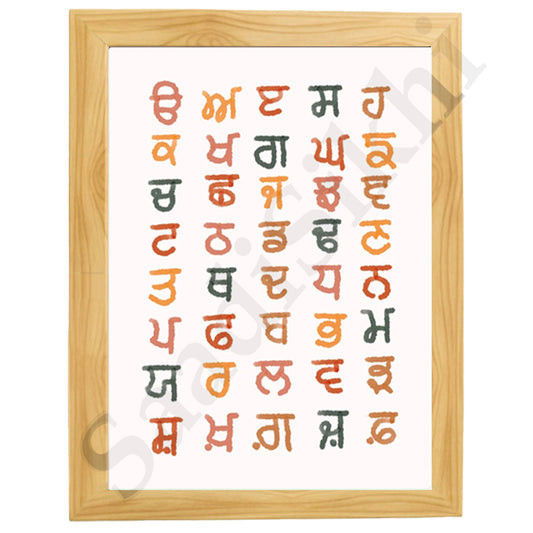 ੳ ਅ ੲ ਸ ਹ
ਕ ਖ ਗ ਘ ਙ
ਚ ਛ ਜ ਝ ਞ
ਟ ਠ ਡ ਢ ਣ
ਤ ਥ ਦ ਧ ਨ
ਪ ਫ ਬ ਭ ਮ
ਯ ਰ ਲ ਵ ੜ
ਸ਼ ਖ਼ ਗ਼ ਜ਼ ਫ਼
SaadiSikhi